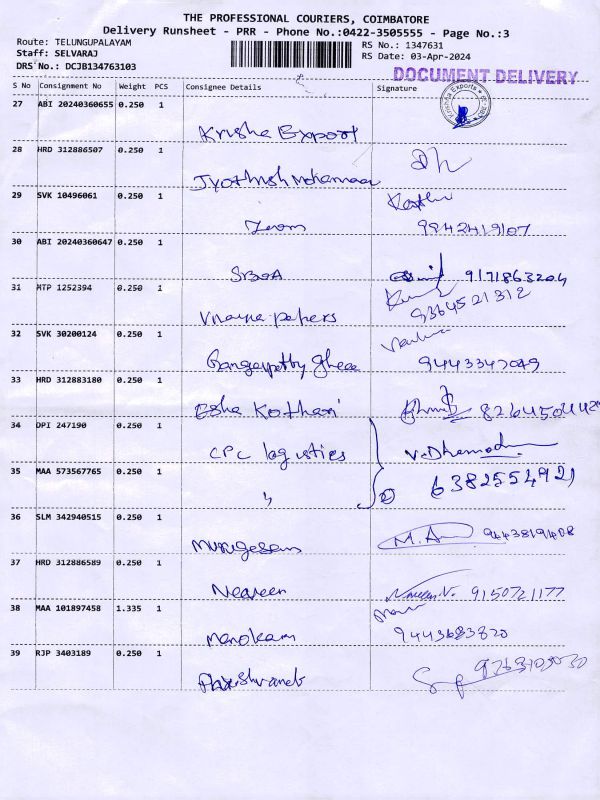 THE PROFESSIONAL COURIERS, COIMBATORE
Delivery Runsheet - PRR - Phone No.:0422-3505555 - Page No.:3
Route: TELUNGUPALAYAM RS No.: 1347631
Staff: SELVARAJ RS Date: 03-Apr-2024
DRS No.: DCJB134763103
DOCUMENT DELIVERY
S No Consignment No Weight PCS Consignee Details Signature
Krisha Exports
27 ABI 20240360655 0.250 1
Krisha Export
28 HRD 312886507 0.250 1
29 SVK 10496061 0.250 1
9842419107
30 ABI 20240360647 0.250 1
9171863204
31 MTP 1252394 0.250 1
papers 9364521312
32 SVK 30200124 0.250 1
Ghee 9443347049
33 HRD 312883180 0.250 1
Esha Kothari
34 DPI 247190 0.250 1
CPC logistics V. Dhamod
35 MAA 573567765 0.250 1
" 6382554921
36 SLM 342940515 0.250 1
Murugesan 9443819408
37 HRD 312886589 0.250 1
Naveen Naveen.N. 9150721177
38 MAA 101897458 1.335 1
Manokaram 9443683820
39 RJP 3403189 0.250 1